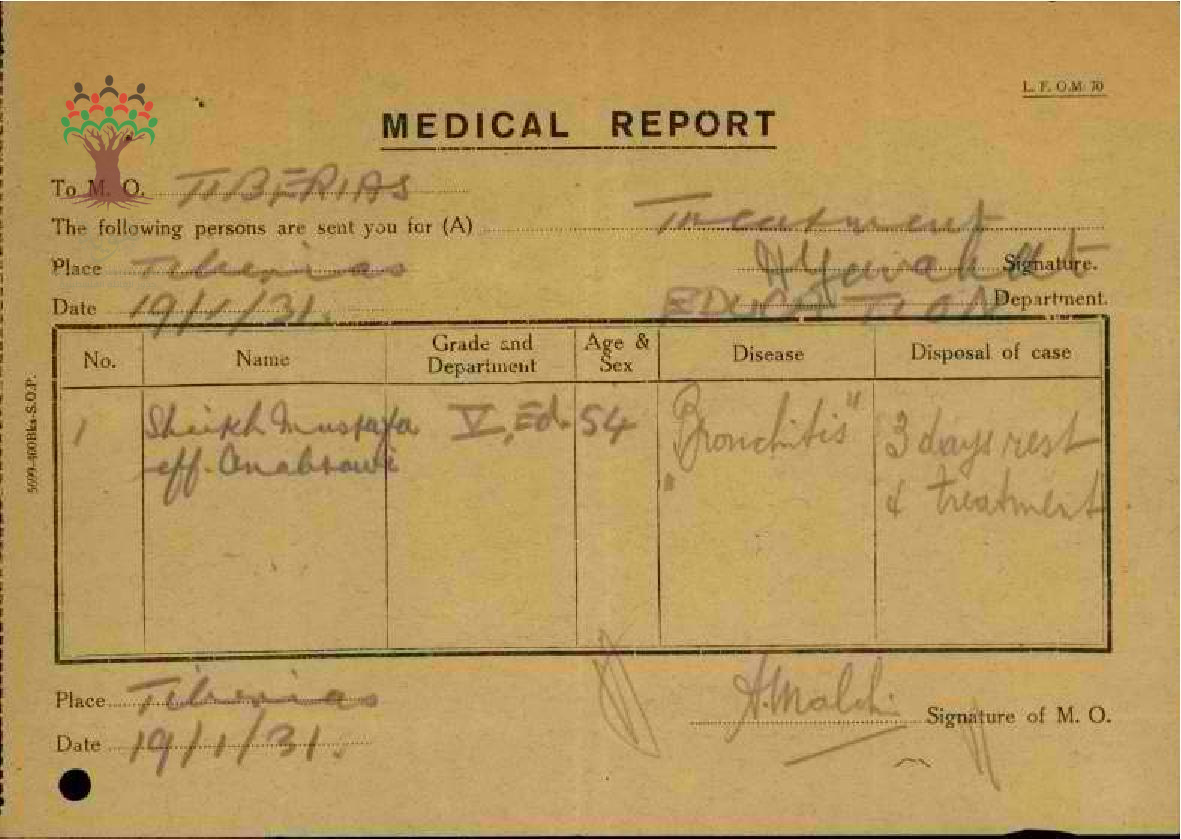 L. F. O.M. 70
MEDICAL REPORT
To M. O. TIBERIAS
The following persons are sent you for (A) Treatment
Place Tiberias Signature.
Date 19/1/31. EDUCATION Department.
No. Name Grade and Department Age & Sex Disease Disposal of case
1 Sheikh Mustafa V, Ed. 54 "Bronchitis" 3 days rest
eff. Anabtawi & treatment
Place Tiberias
A. Malchi Signature of M. O.
Date 19/1/31.